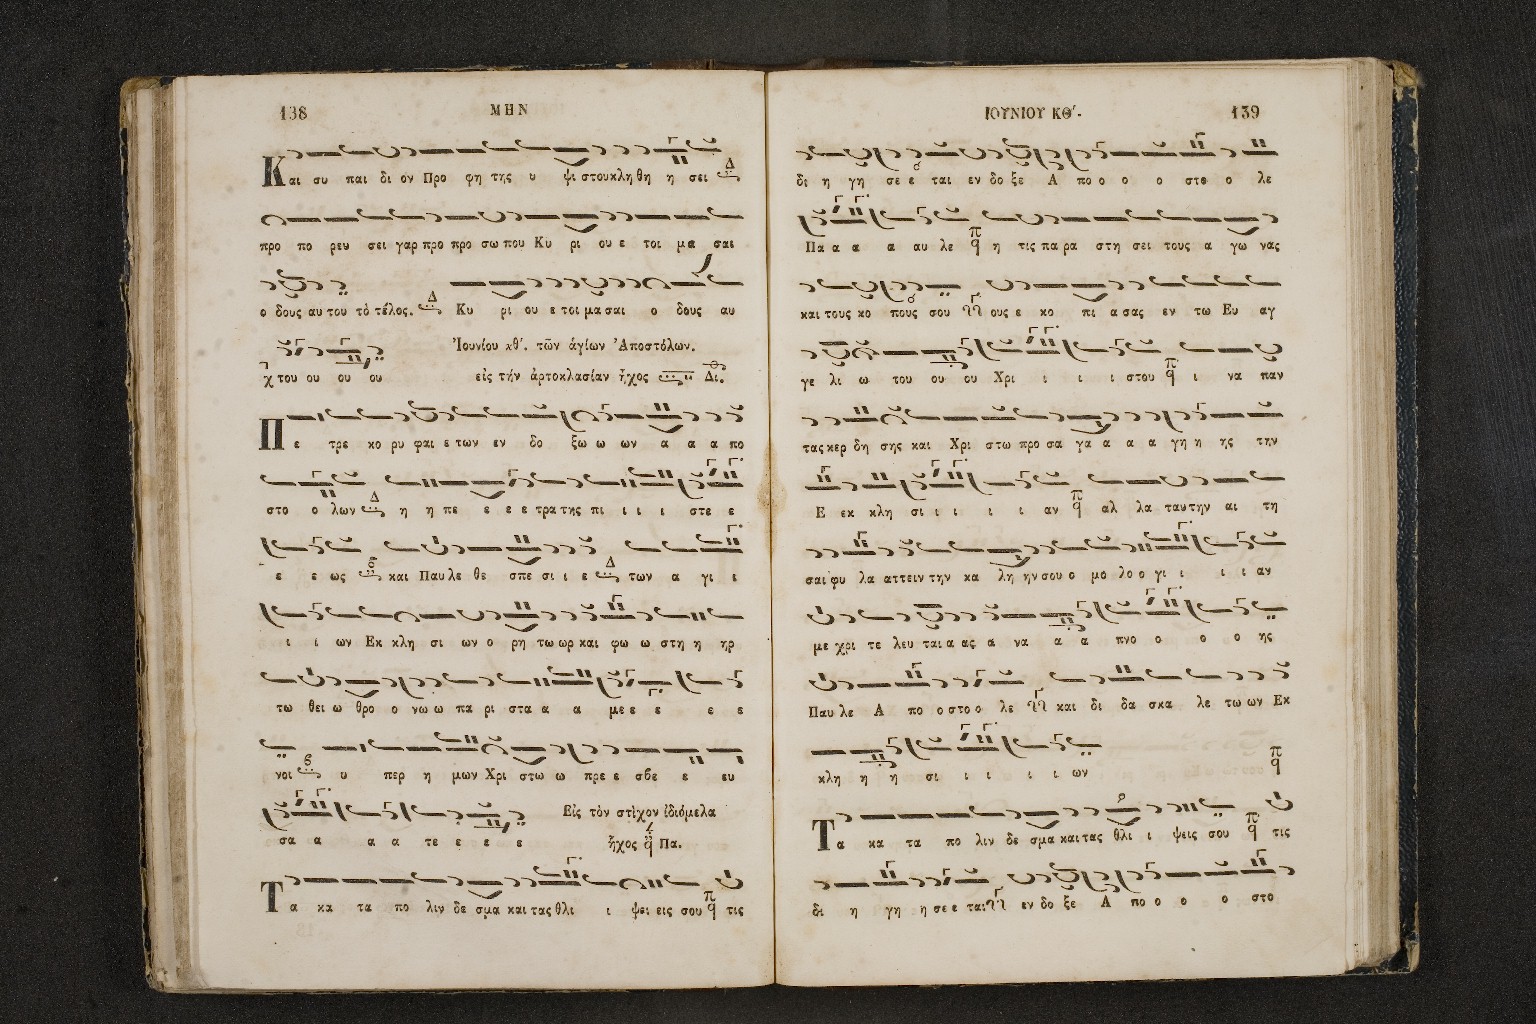 138
ΜΗΝ
Και συ παι δι ον Προ φη της υ ψι στουκληθη η σει
προ πο ρευ σει γαρ προ προ σω που Κυ ρι ου ε τοι μα σαι
ο δους αυ του τὸ τέλος. Κυ ρι ου ε τοι μα σαι ο δους αυ
του ου ου ου
Ἰουνίου κθ΄. τῶν ἁγίων Ἀποστόλων.
εἰς τήν ἀρτοκλασίαν ἦχος Δι.
Πε τρε κο ρυ φαι ε των εν δο ξω ω ων α α α πο
στο ο λων η η πε ε ε ε τρα της πι ι ι ι στε ε
ε ε ως και Παυ λε θε σπε σι ι ε των α γι ι
ι ι ων Εκ κλη σι ων ο ρη τω ωρ και φω ω στη η ηρ
τω θει ω θρο ο νω ω πα ρι στα α α με ε ε ε ε
νοι υ περ η μων Χρι στω ω πρε ε σβε ε ευ
σα α α α τε ε ε ε
Εἰς τὸν στίχον ἰδιόμελα
ἦχος Πα.
Τα κα τα πο λιν δε σμα και τας θλι ι ψει εις σου τις
ΙΟΥΝΙΟΥ ΚΘ΄.
139
δι η γη σε ε ται εν δο ξε Α πο ο ο ο στο ο λε
Πα α α α αυ λε η τις πα ρα στη σει τους α γω νας
και τους κο πους σου ους ε κο πι α σας εν τω Ευ αγ
γε λι ω του ου ου Χρι ι ι ι στου ι να παν
τας κερ δη σης και Χρι στω προ σα γα α α α γη η ης την
Ε εκ κλη σι ι ι ι ι αν αλ λα ταυ την αι τη
σαι φυ λα αττειν την κα λη ην σου ο μο λο ο γι ι ι ι αν
με χρι τε λευ ται α ας α να α α πνο ο ο ο ης
Παυ λε Α πο ο στο ο λε και δι δα σκα λε τω ων Εκ
κλη η η σι ι ι ι ι ων
Τα κα τα πο λιν δε σμα και τας θλι ι ψεις σου τις
δι η γη η σε ε ται εν δο ξε Α πο ο ο ο στο